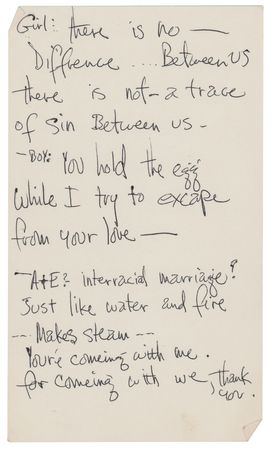 Girl: there is no —
Diffrence .... Between us
there is not - a trace
of Sin Between us -
- Boy: You hold the egg
While I try to excape
from your love —
"A+E? interracial marriage?
Just like water and fire
-- Makes steam --
You're comeing with me.
for comeing with we, thank
you.